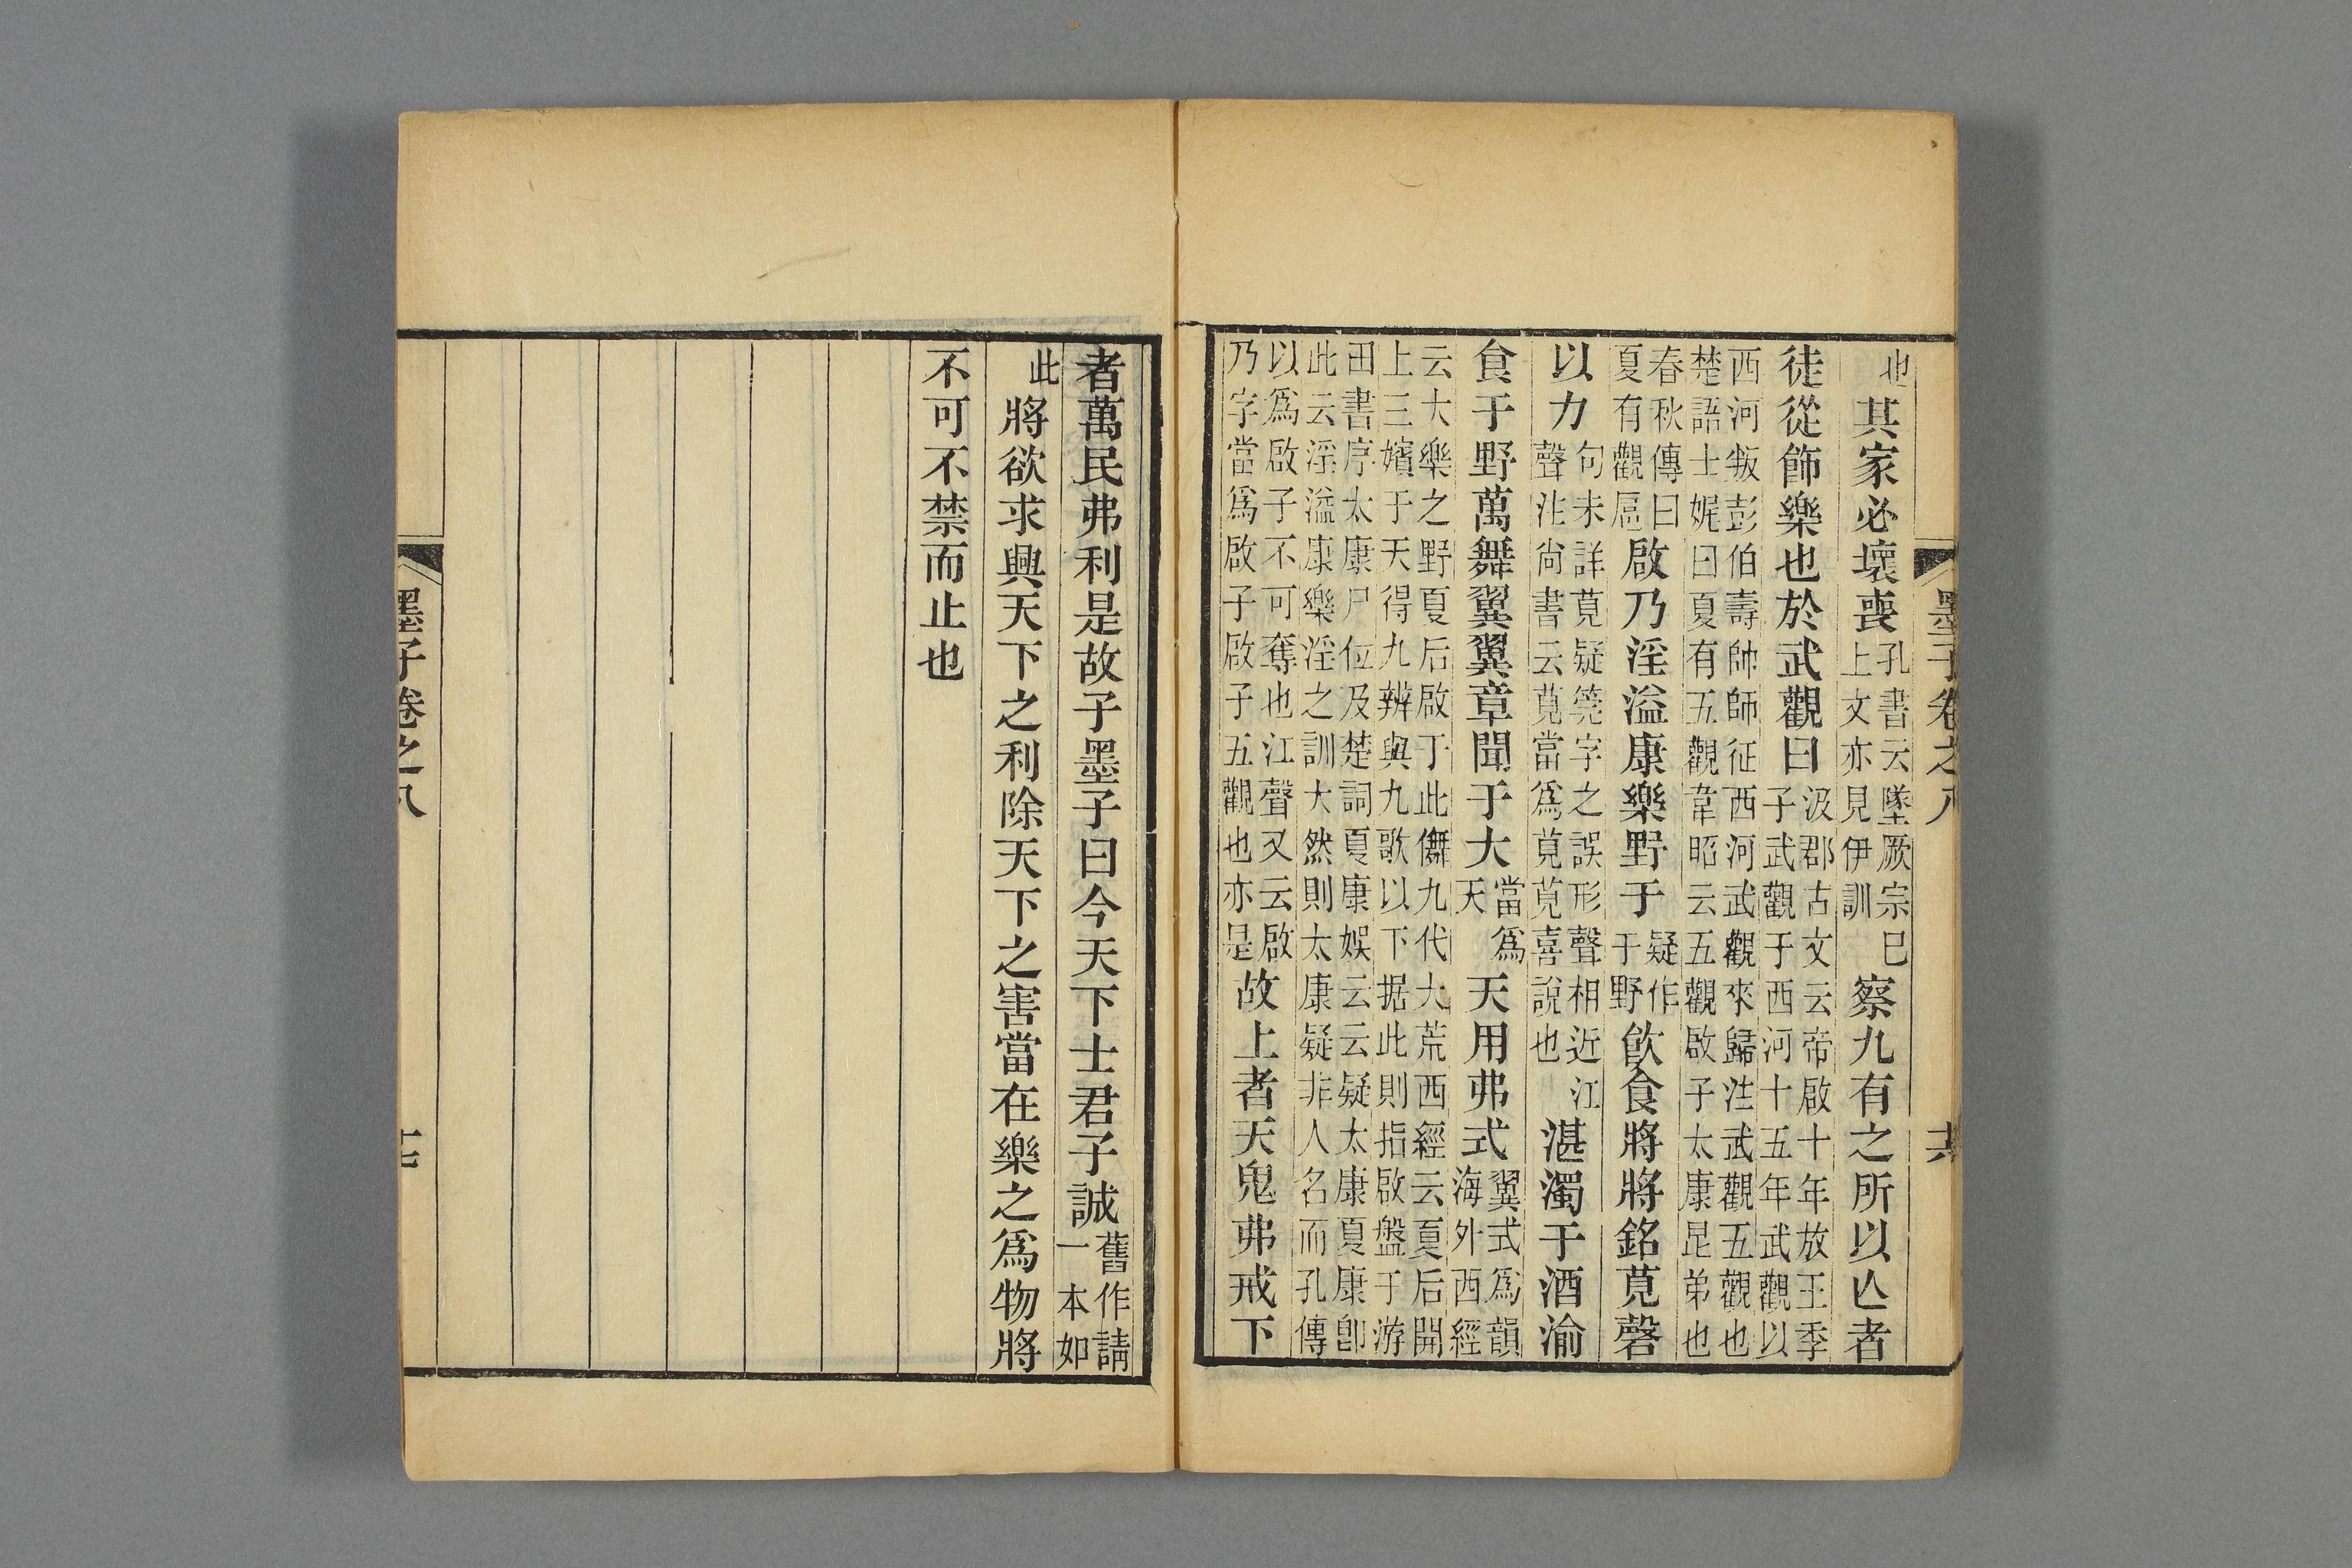 墨子卷之八
十六
也其家必壞喪孔書云墜厥宗巳上文亦見伊訓察九有之所以亾者
徒從飾樂也於武觀曰汲郡古文云帝啟十年放王季子武觀于西河十五年武觀以
西河叛彭伯壽帥師征西河武觀來歸注武觀五觀也楚語士娓曰夏有五觀韋昭云五觀啟子太康昆弟也
春秋傳曰夏有觀扈啟乃淫溢康樂野于疑作于野飲食將將銘莧磬
以力句未詳莧疑筦字之誤形聲相近江聲注尚書云莧當爲莧莧喜說也湛濁于酒渝
食于野萬舞翼翼章聞于大當爲天天用弗式翼式爲韻海外西經
云大樂之野夏后啟于此儛九代大荒西經云夏后開上三嬪于天得九辨與九歌以下据此則指啟盤于游
田書序太康尸位及楚詞夏康娛云云疑太康夏康卽此云淫溢康樂淫之訓大然則太康疑非人名而孔傳
以爲啟子不可奪也江聲又云啟乃字當爲啟子啟子五觀也亦是故上者天鬼弗戒下
者萬民弗利是故子墨子曰今天下士君子誠舊作請一本如
此將欲求興天下之利除天下之害當在樂之爲物將
不可不禁而止也
墨子卷之八
十七